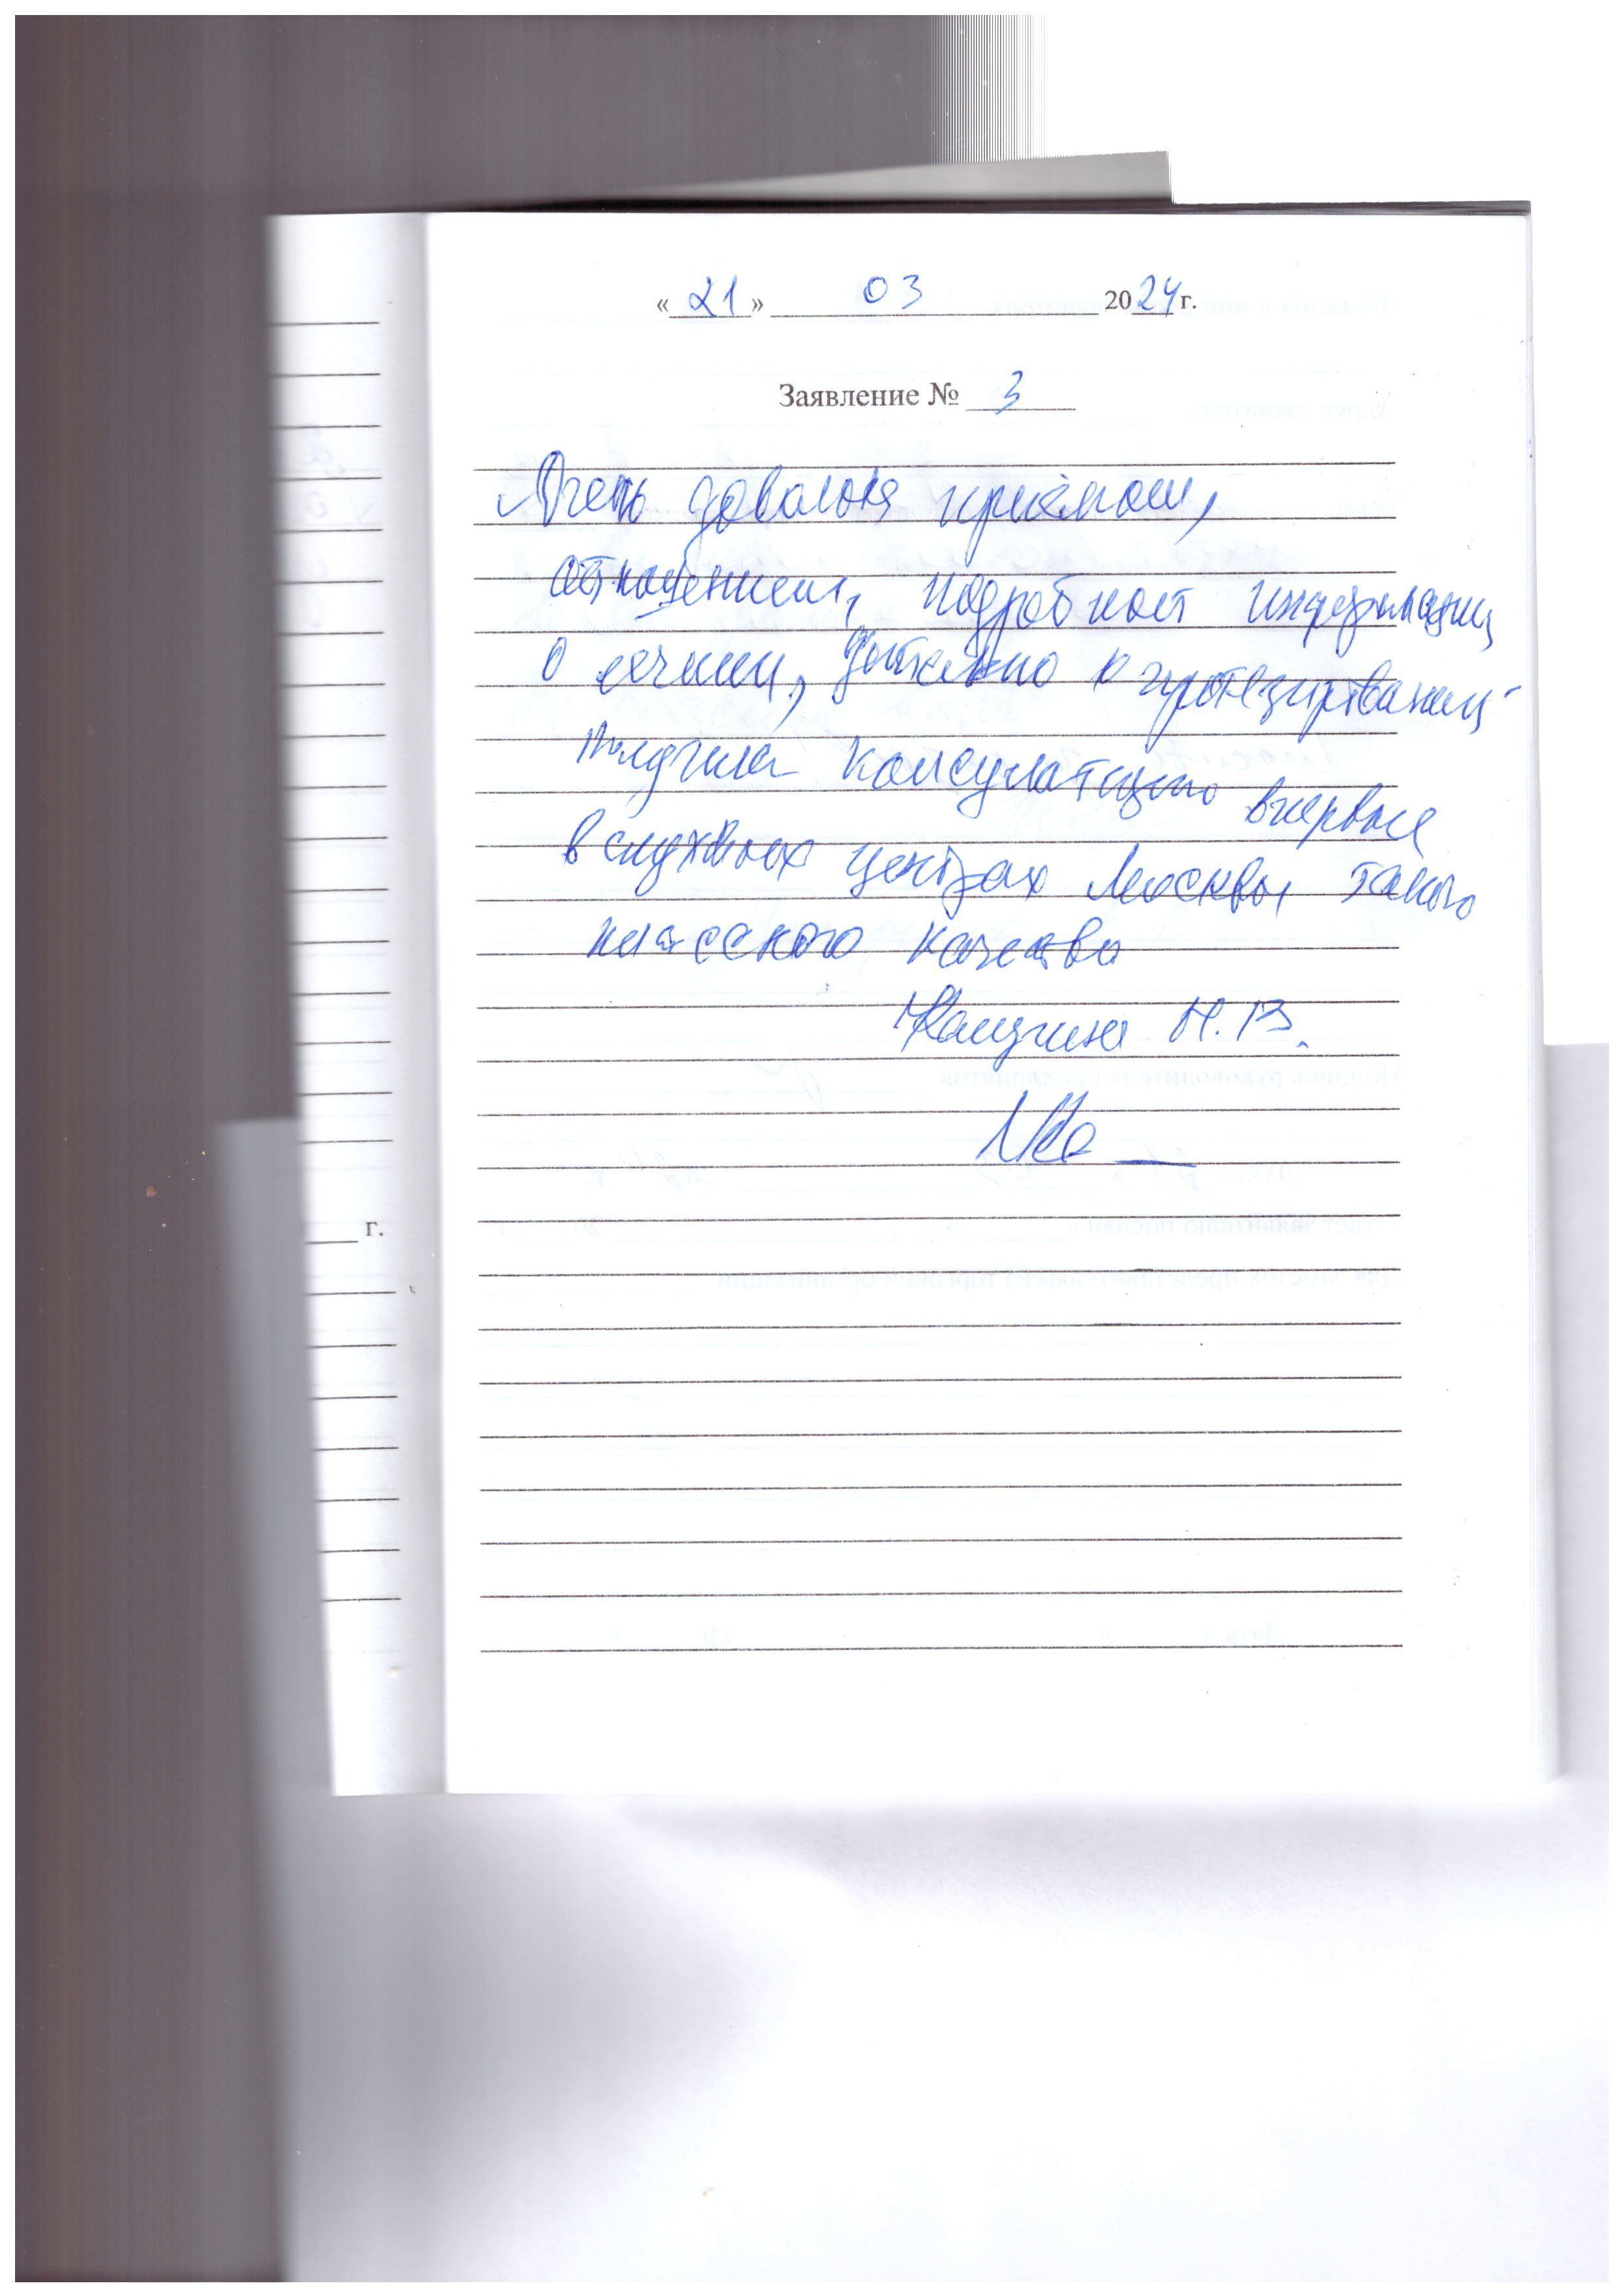 « 21 » 03 2024 г.
Заявление № 3
Очень довольна приёмом,
отношением, подробност информации
о лечении,
протезировании
получила консультацию впервые
в слуховых центрах Москвы такого
классного качества
Н. В.
г.